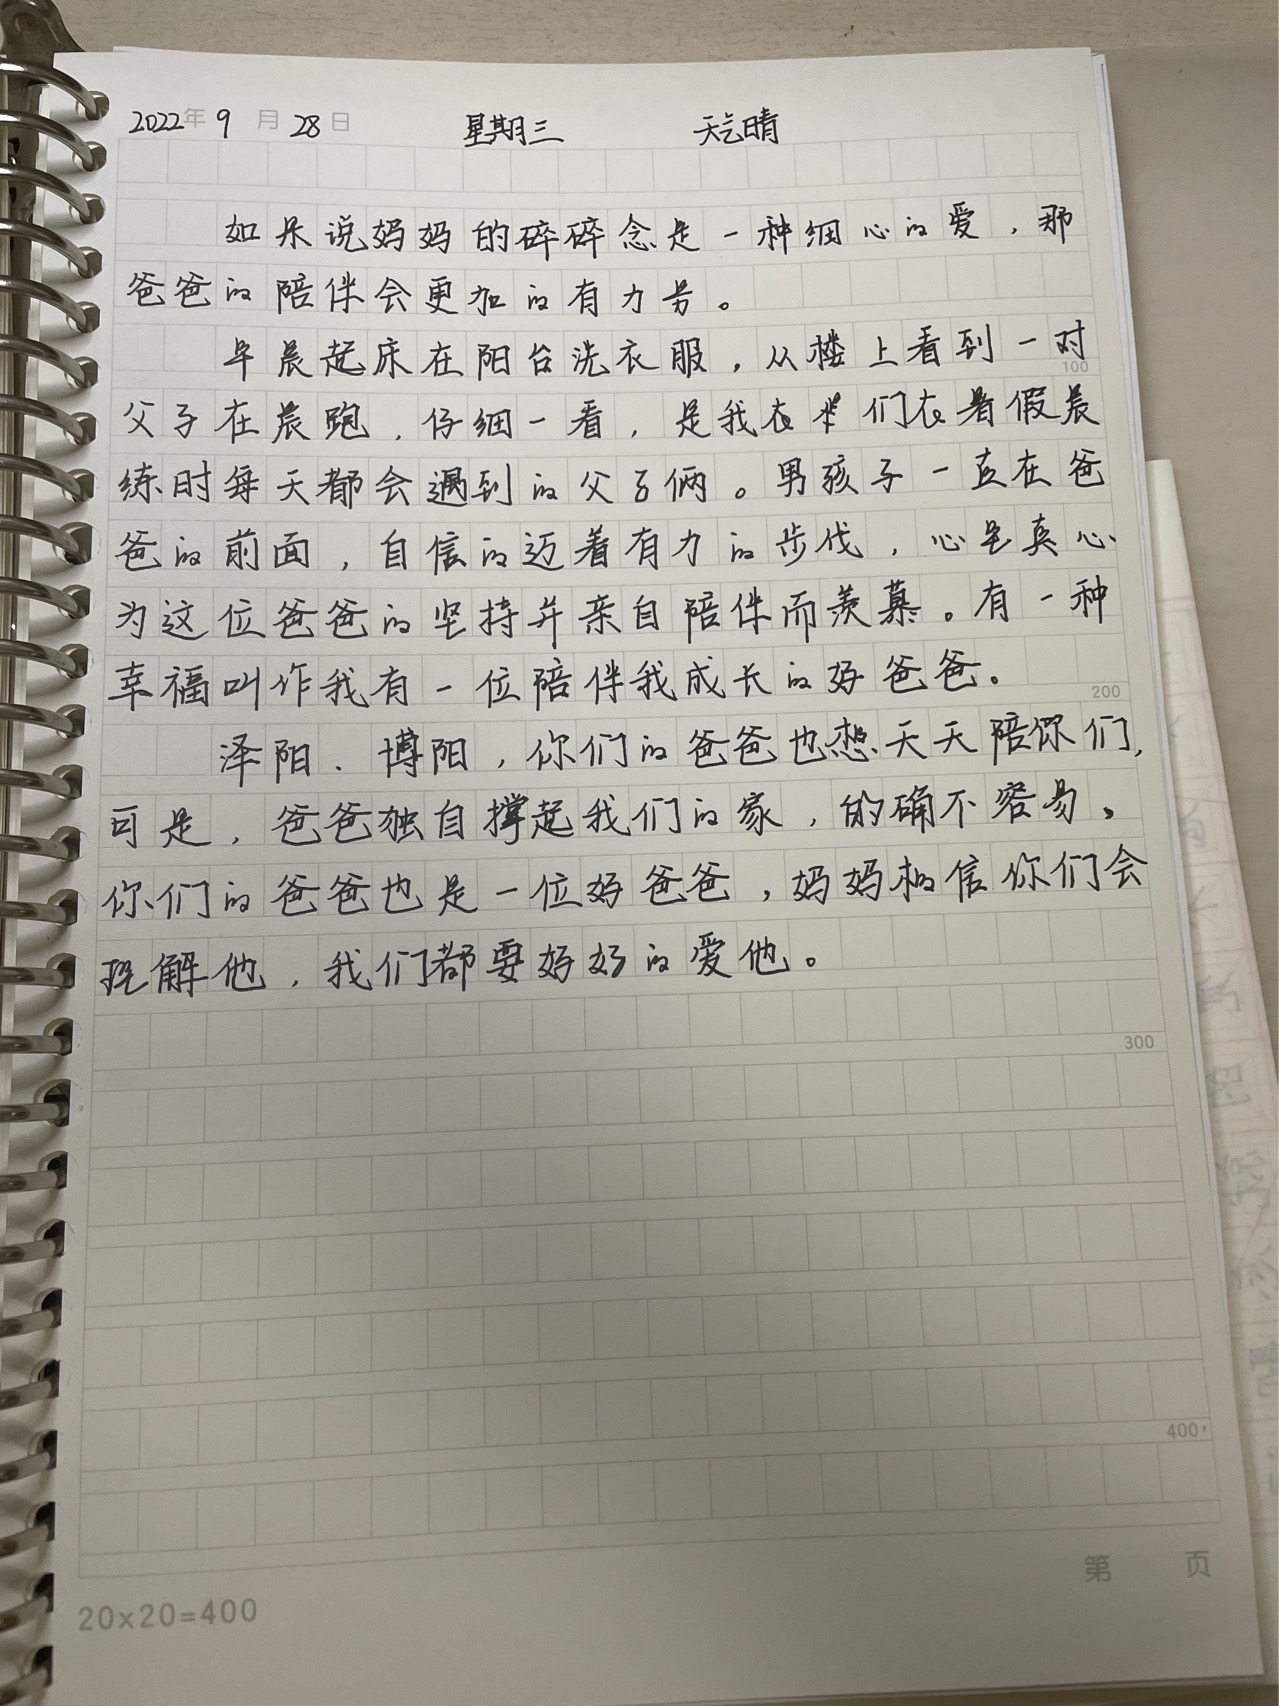 2022年9月28日 星期三 天气晴
如果说妈妈的碎碎念是一种细心的爱，那
爸爸的陪伴会更加的有力量。
早晨起床在阳台洗衣服，从楼上看到一对
100
父子在晨跑，仔细一看，是我在们在暑假晨
练时每天都会遇到的父子俩。男孩子一直在爸
爸的前面，自信的迈着有力的步伐，心里真心
为这位爸爸的坚持并亲自陪伴而羡慕。有一种
幸福叫作我有一位陪伴我成长的好爸爸。
200
泽阳、博阳，你们的爸爸也想天天陪你们，
可是，爸爸独自撑起我们的家，的确不容易。
你们的爸爸也是一位好爸爸，妈妈相信你们会
理解他，我们都要好好的爱他。
300
400
第 页
20×20=400